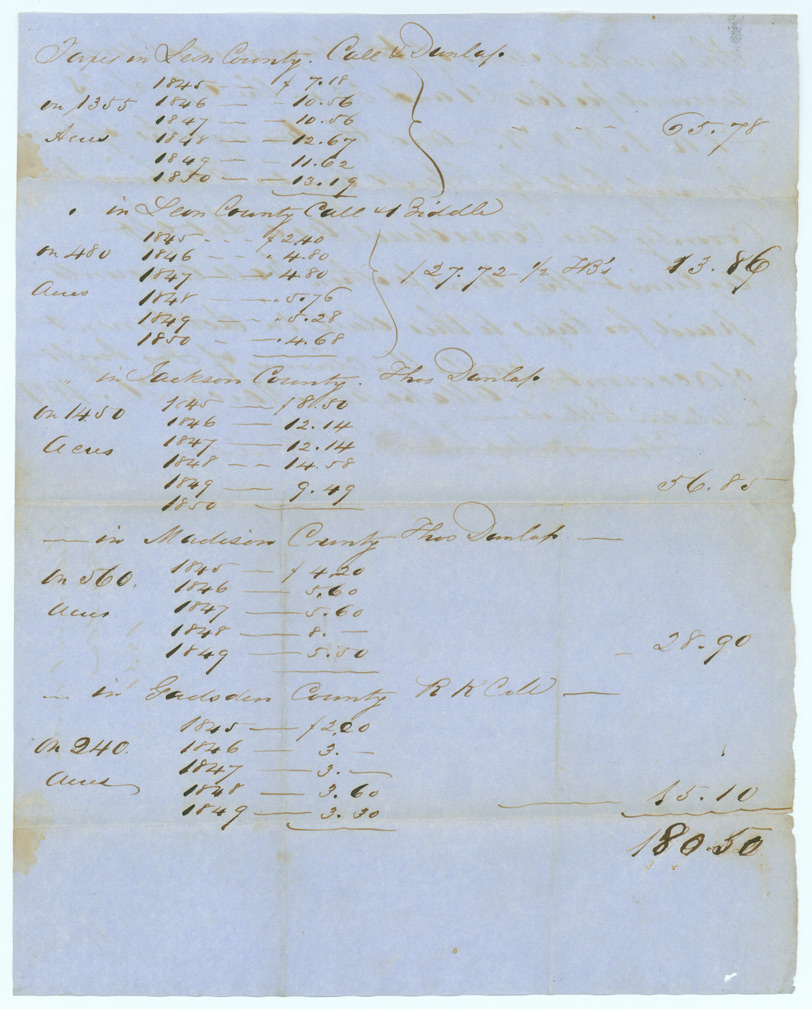 Taxes in Leon County. Call & Dunlap
1845 - - $ 7.18
on 1355 1846 - - 10.56
1847 - - 10.56 - - - 65.78
Acres 1848 - - 12.67
1849 - - 11.62
1850 - - 13.19
" in Leon County Call & Biddle
1845 - - - $2.40
on 480 1846 - " 4.80
1847 - " 4.80 $27.72 - 1/2 13.86
Acres 1848 - " 5.76
1849 - - " 5.28
1850 - " 4.68
" in Jackson County. Thos Dunlap
1845 — $8.50
on 1450 1846 — 12.14
1847 — 12.14
Acres 1848 - - 14.58
1849 — 9.49 56.85
1850 —
— in Madison County Thos Dunlap —
1845 — $ 4.20
on 560. 1846 — 5.60
1847 — 5.60
Acres 1848 — 8. —
1849 — 5.50 — 28.90
— in Gadsden County R K Call —
1845 — $2.20
on 240. 1846 — 3. —
1847 — 3. —
Acres 1848 — 3.60 — 15.10
1849 — 3.30
180.50